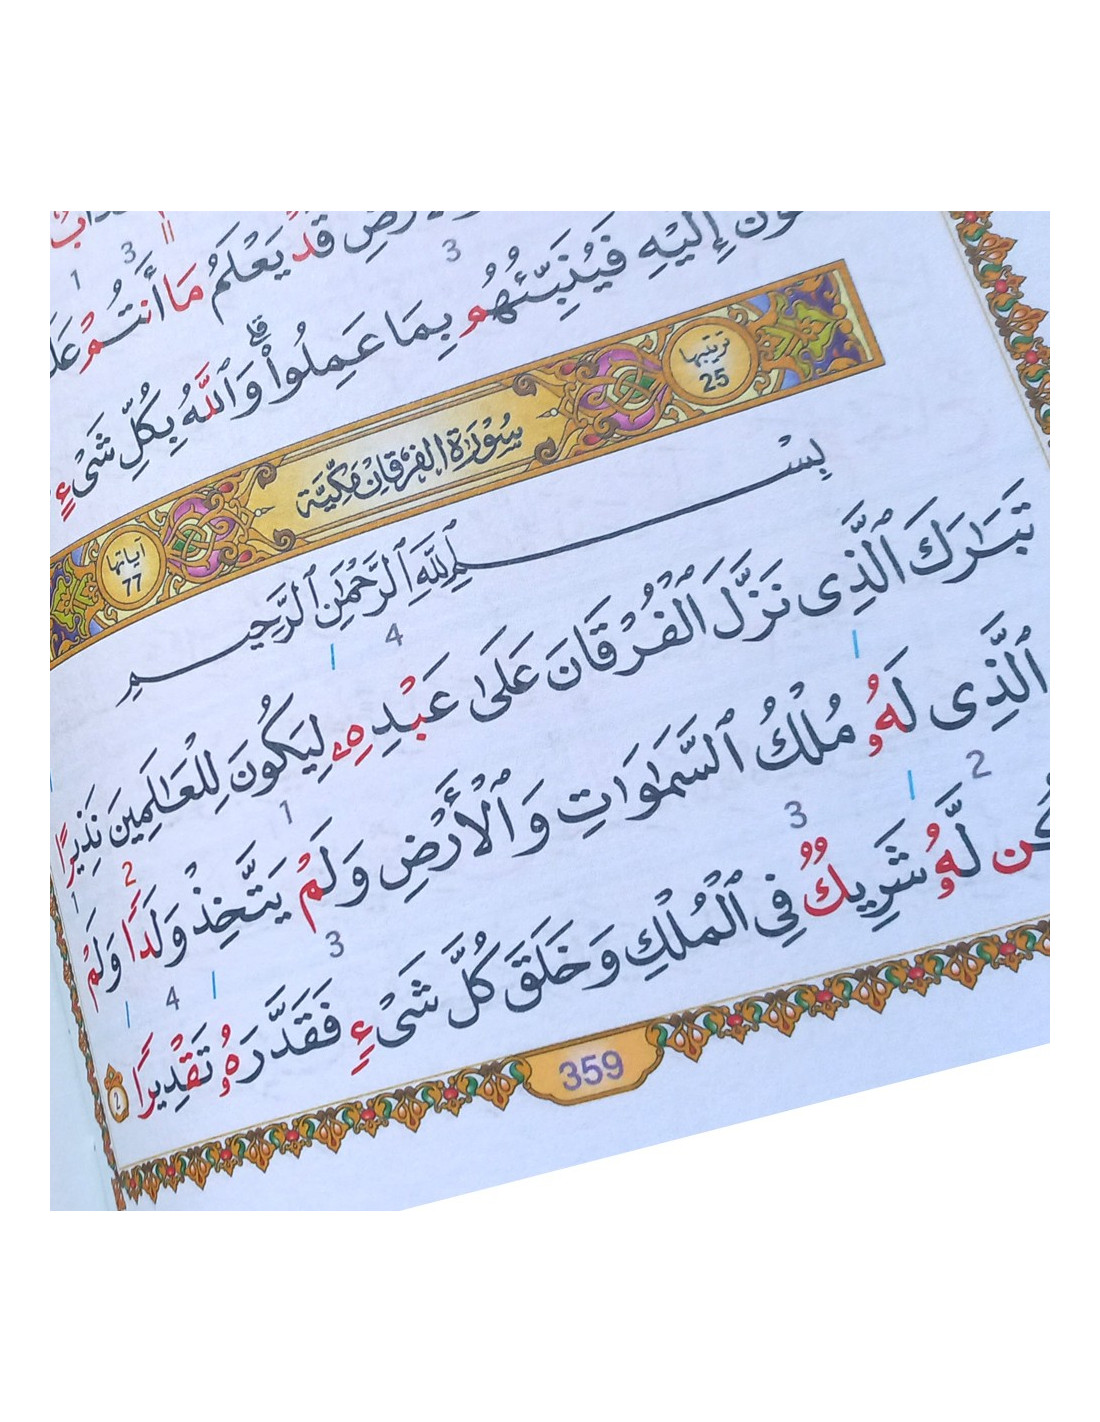 قَدْ يَعْلَمُ مَا أَنتُمْ
إِلَيْهِ فَيُنَبِّئُهُم بِمَا عَمِلُوا۟ ۗ وَٱللَّهُ بِكُلِّ شَىْءٍ
ترتيبها 25 سُورَةُ الفُرْقَانِ مَكِّيَّة آياتها 77
بِسْمِ ٱللَّهِ ٱلرَّحْمَٰنِ ٱلرَّحِيمِ
تَبَارَكَ ٱلَّذِى نَزَّلَ ٱلْفُرْقَانَ عَلَىٰ عَبْدِهِۦ لِيَكُونَ لِلْعَٰلَمِينَ نَذِيرًا
ٱلَّذِى لَهُۥ مُلْكُ ٱلسَّمَٰوَٰتِ وَٱلْأَرْضِ وَلَمْ يَتَّخِذْ وَلَدًا وَلَمْ
لَّهُۥ شَرِيكٌ فِى ٱلْمُلْكِ وَخَلَقَ كُلَّ شَىْءٍ فَقَدَّرَهُۥ تَقْدِيرًا 2
359